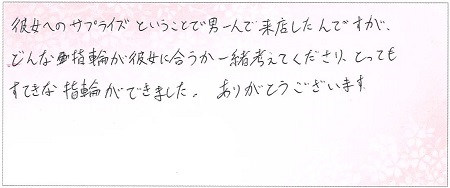 彼女へのサプライズということで男一人で来店したんですが、
どんな指輪が彼女に合うか一緒考えてくださり、とっても
すてきな指輪ができました。 ありがとうございます